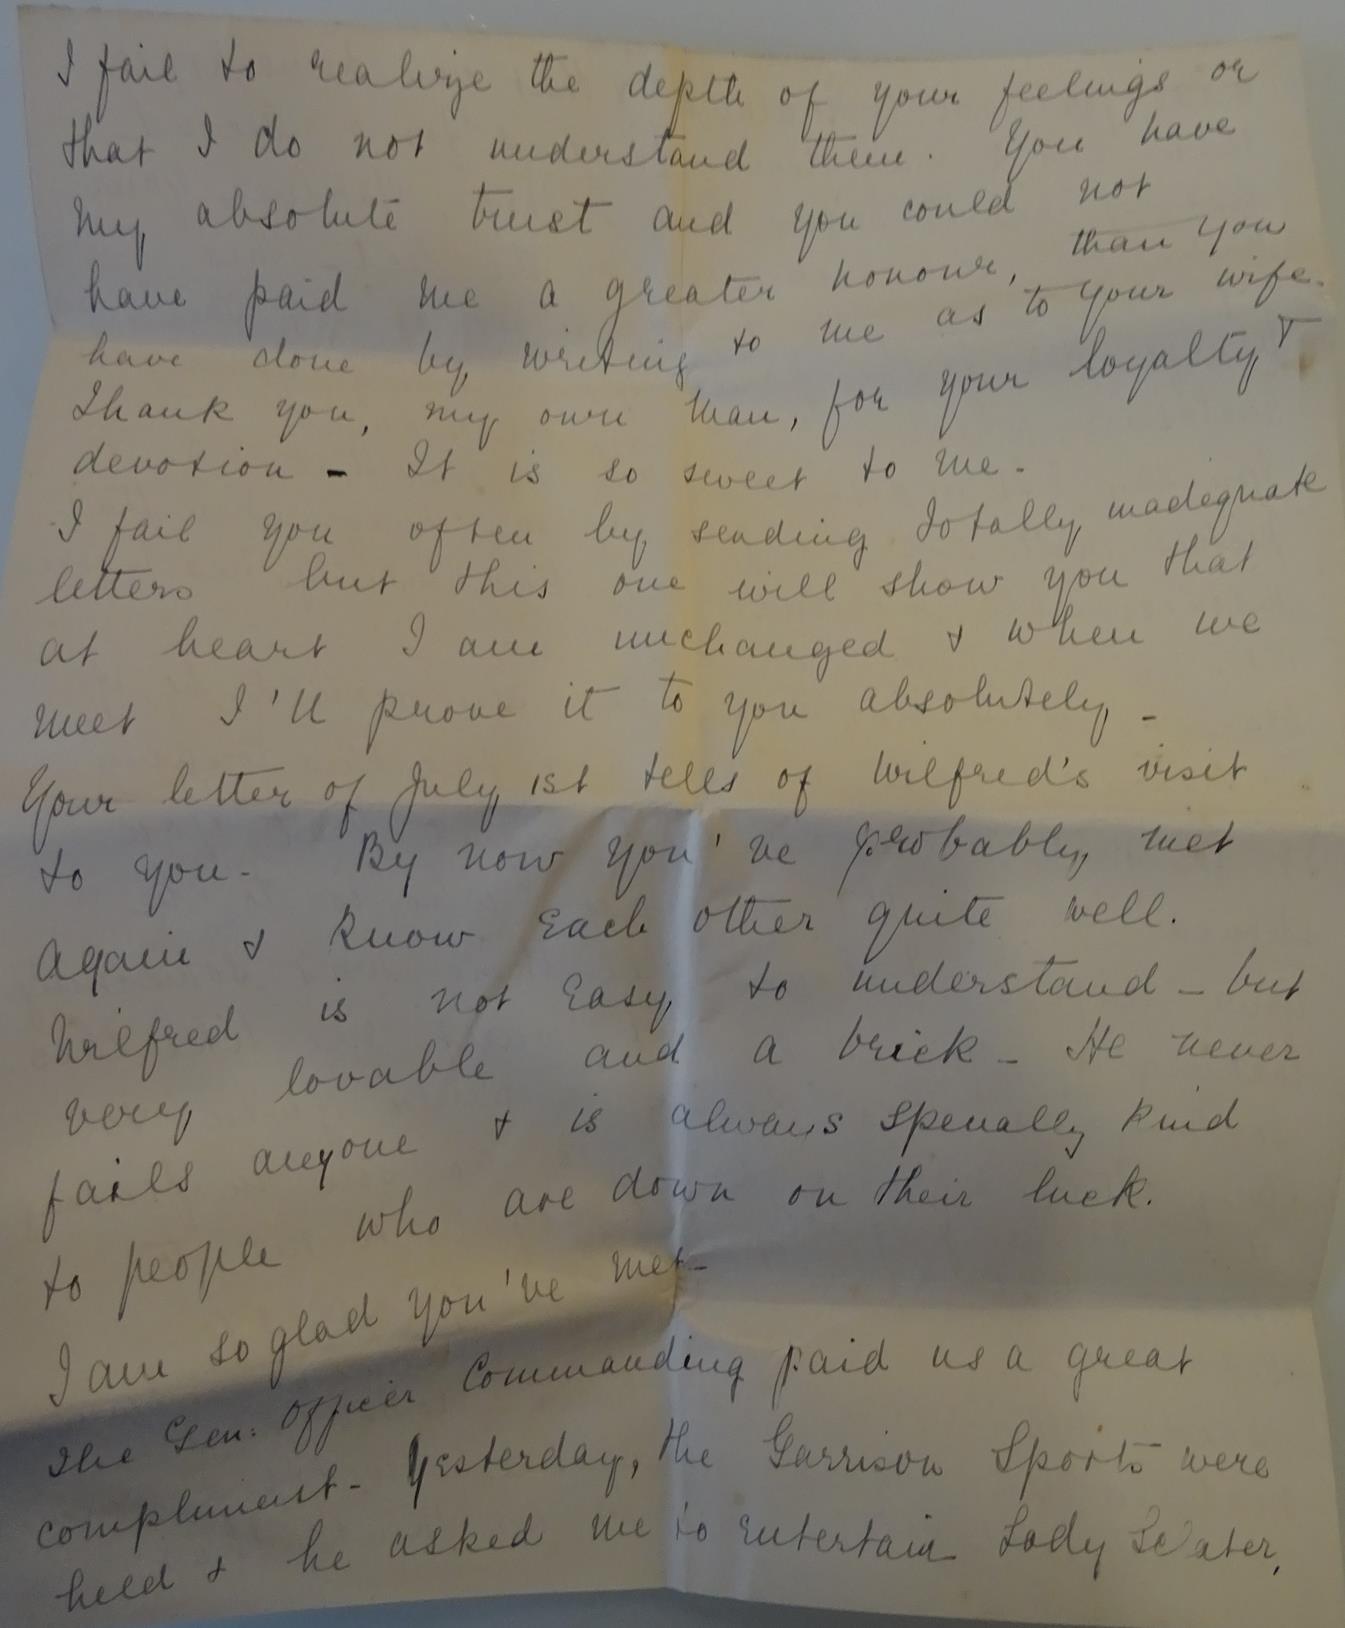 I fail to realize the depth of your feelings or
that I do not understand them. You have
my absolute trust and you could not
have paid me a greater honour, than you
have done by writing to me as to your wife.
Thank you, my own man, for your loyalty &
devotion - It is so sweet to me.
I fail you often by sending totally inadequate
letters but this one will show you that
at heart I am unchanged & when we
meet I'll prove it to you absolutely -
Your letter of July 1st tells of Wilfred's visit
to you. By now you've probably met
again & know each other quite well.
Wilfred is not easy to understand - but
very lovable and a brick - He never
fails anyone & is always specially kind
to people who are down on their luck.
I am so glad you've met -
The Gen. Officer Commanding paid us a great
compliment - Yesterday, the Garrison Sports were
held & he asked me to entertain Lady